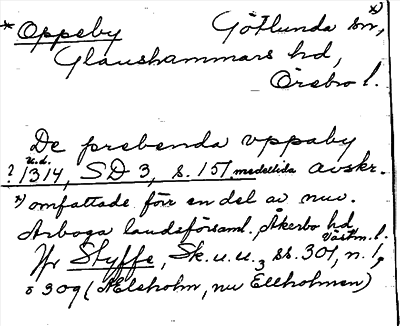 * Oppeby Götlunda sn, x)
Glanshammars hd,
Örebro l.
De prebenda vppaby
? 1314, u.d. SD 3, s. 151 medeltida avskr.
x) omfattade förr en del av nuv.
Arboga landsförsaml. Åkerbo hd Västm. l.
Jfr Styffe, Sk. u. u. 3 ss. 301, n. 1,
o 309 (Ælsholm, nu Ellholmen)